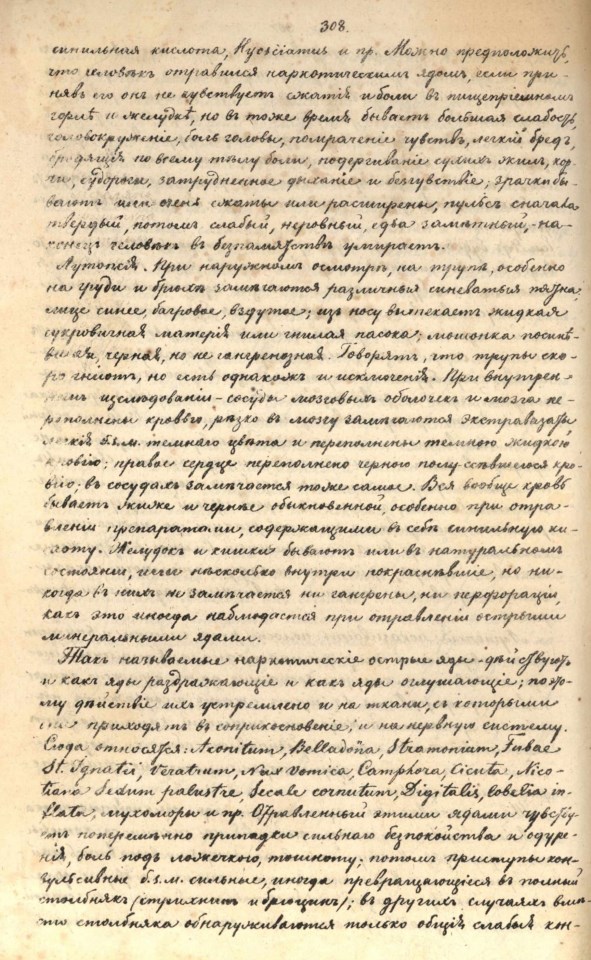 308.
синильная кислота, Hyosciamus и пр. Можно предположить,
что человѣкъ отравился наркотическимъ ядомъ, если при-
нявъ его онъ не чувствуетъ сжатія и боли въ пищепріемномъ
горлѣ и желудкѣ, но въ тоже время бываетъ большая слабость,
головокруженіе, боль головы, помраченіе чувствъ, легкій бредъ,
бродящія по всему тѣлу боли, подергиваніе сухихъ жилъ, кор-
чи, судороги, затрудненное дыханіе и безчувствіе; зрачки бы-
ваютъ или очень сжаты или расширены, пульсъ сначала
твердый, потомъ слабый, неровный, едва замѣтный, на-
конецъ человѣкъ въ безпамятствѣ умираетъ.
Аутопсія. При наружномъ осмотрѣ, на трупѣ, особенно
на груди и брюхѣ замѣчаются различныя синеватыя пятна,
лице синее, багровое, вздутое; изъ носу вытекаетъ жидкая
сукровичная матерія или гнилая пасока; мошонка посинѣ-
вшая, черная, но не гангренозная. Говорятъ, что трупы ско-
ро гніютъ, но есть однакожъ и исключенія. При внутрен-
немъ изслѣдованіи - сосуды мозговыхъ оболочекъ и мозга пе-
реполнены кровью, рѣдко въ мозгу замѣчаются экстравазаты
легкія б. ч. темнаго цвѣта и переполнены темною жидкою
кровію; правое сердце переполнено черною полу-ссѣвшеюся кро-
вію; въ сосудахъ замѣчается тоже самое. Вся вообще кровь
бываетъ жиже и чернѣе обыкновенной, особенно при отра-
вленіи препаратами, содержащими въ себѣ синильную ки-
слоту. Желудокъ и кишки бываютъ или въ натуральномъ
состояніи, или нѣсколько внутри покраснѣвшіе, но ни-
когда въ нихъ не замѣчается ни гангрены, ни перфораціи,
какъ это иногда наблюдается при отравленіи острыми
минеральными ядами.
Такъ называемые наркотическіе острые яды дѣйствуютъ
и какъ яды раздражающіе и какъ яды оглушающіе; поэто
му дѣйствіе ихъ устремлено и на ткани, съ которыми
они приходятъ въ соприкосновеніе, и на нервную систему.
Сюда относятся: Aconitum, Belladona, Stramonium, Fabae
St. Ignatii, Veratrum, Nux Vomica, Camphora, Cicuta, Nico-
tiana Sedum palustre, Secale cornutum, Digitalis, Lobelia in-
flata, мухоморы и пр. Отравленный этими ядами чувству-
етъ поперемѣнно припадки сильнаго безпокойства и одуре-
нія, боль подъ ложечкою, тошноту; потомъ приступы кон-
вульсивные б. ч. сильные, иногда превращающіеся въ полный
столбнякъ (стрихнинъ и бруцинъ); въ другихъ случаяхъ вмѣ-
сто столбняка обнаруживаются только общія слабыя кон-